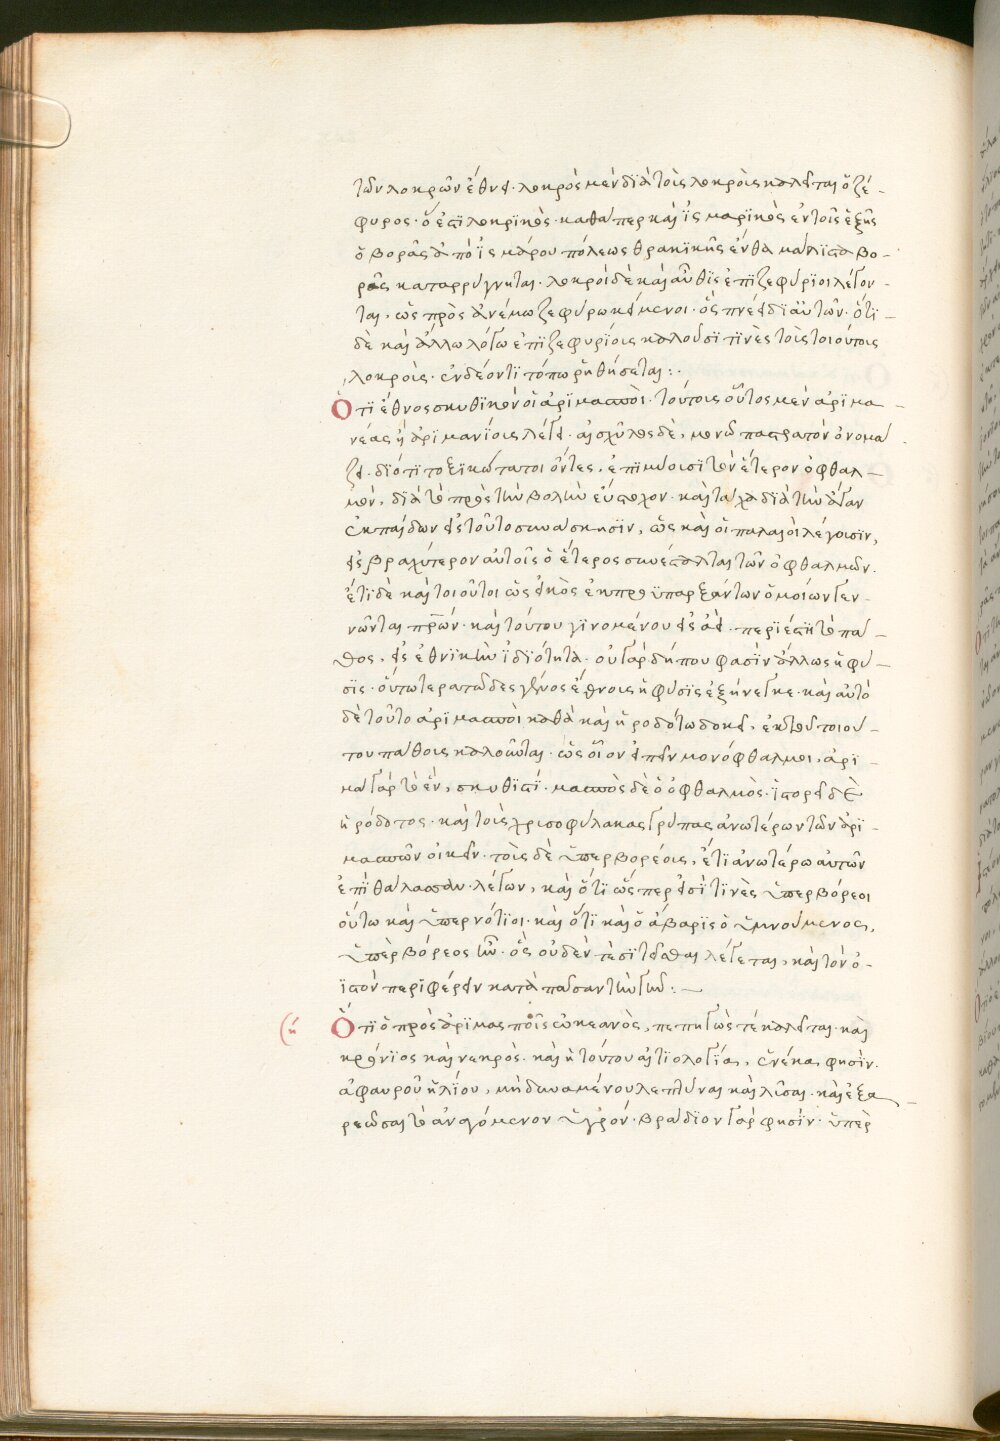 τῶν λοκρῶν ἔθνει· λοκρὸς μὲν διὰ τοὺς λοκροὺς καλεῖται ὁ ζέ-
φυρος· ὁ ἐπιλοκρικὸς· καθάπερ καὶ ἰσμαρικὸς ἐν τοῖς ἑξῆς
ὁ βορᾶς ἀπὸ ἰσμάρου πόλεως θρακικῆς ἔνθα μάλιστα βο-
ρᾶς καταρρύγνηται· λοκροὶ δὲ καὶ αὖθις ἐπιζεφύριοι λέγον-
ται, ὡς πρὸς ἀνέμω ζεφύρω κείμενοι· ὃς πνέει δι αὐτῶν· ὅτι-
δὲ καὶ ἄλλω λόγω ἐπιζεφυρίους καλοῦσί τινὲς τοὺς τοιούτους
λοκροὺς· ἐν δέοντι τόπω ῥηθήσεται:·
Ὅτι ἔθνος σκυθικὸν οἱ ἀριμασποὶ· τούτους οὗτος μὲν ἀριμα-
νέας ἢ ἀριμανίους λέγει· αἰσχύλος δὲ, μονωπα στρατὸν ὀνομά
ζει· διότι τοξικώτατοι ὄντες, ἐπιμύουσι τὸν ἕτερον ὀφθαλ-
μὸν, διὰ τὸ πρὸς τὴν βολὴν εὔστοχον· καὶ τάχα διὰ τὴν ἄγαν
ἐκ παίδων εἰς τοῦτο συνάσκησιν, ὡς καὶ οἱ παλαιοὶ λέγουσιν,
εἰς βραχύτερον αὐτοῖς ὁ ἕτερος συνέσταλται τῶν ὀφθαλμῶν·
ἔτι δὲ καὶ τοιοῦτοι ὡς εἰκὸς ἐκ προϋπαρξάντων ὁμοίων γεν-
νῶνται πρων· καὶ τούτου γινομένου εἰς ἀεὶ· περιέστη τὸ πά-
θος, εἰς ἐθνικὴν ἰδιότητα· οὐ γὰρ δήπου φασὶν ἄλλως ἡ φύ-
σις· οὕτω τερατῶδες γένος ἔθνους ἡ φύσις ἐξήνεγκε· καὶ αὐτὸ
δὲ τοῦτο ἀριμασποὶ καθὰ καὶ ἡροδότω δοκεῖ, ἐκ τοῦ τοιού-
του πάθους καλοῦνται· ὡς οἷον εἰπεῖν μονόφθαλμοι, ἄρι-
μα γὰρ τὸ ἓν, σκυθιστί· μασπὸς δὲ ὁ ὀφθαλμὸς· ἱστορεῖ δὲ
ἡρόδοτος· καὶ τοὺς χρυσοφύλακας γρύπας ἀνωτέρω τῶν ἀρι-
μασπῶν οἰκεῖν· τοὺς δὲ ὑπερβορέους, ἔτι ἀνωτέρω αὐτῶν
ἐπὶ θάλασσαν· λέγων, καὶ ὅτι ὥσπερ εἰσί τινὲς ὑπερβόρεοι
οὕτω καὶ ὑπερνότιοι· καὶ ὅτι καὶ ὁ ἄβαρις ὁ ὑμνούμενος,
ὑπερβόρεος ἦν· ὃς οὐδέν τε σιτεῖσθαι λέγεται, καὶ τὸν ὀ-
ιστὸν περιφέρειν κατὰ πᾶσαν τὴν γῆν:—
(η Ὅτι ὁ πρὸς ἀριμασποῖς ὠκεανὸς, πεπηγώς τε καλεῖται· καὶ
κρόνιος καὶ νεκρὸς· καὶ ἡ τούτου αἰτιολογία, ἕνεκα φησὶν·
ἀφαυροῦ ἡλίου, μὴ δυναμένου λεπτῦναι καὶ λῦσαι· καὶ ἐξα
ρεῶσαι τὸ ἀναγόμενον ὑγρόν· βράδιον γάρ φησὶν· ὑπὲρ